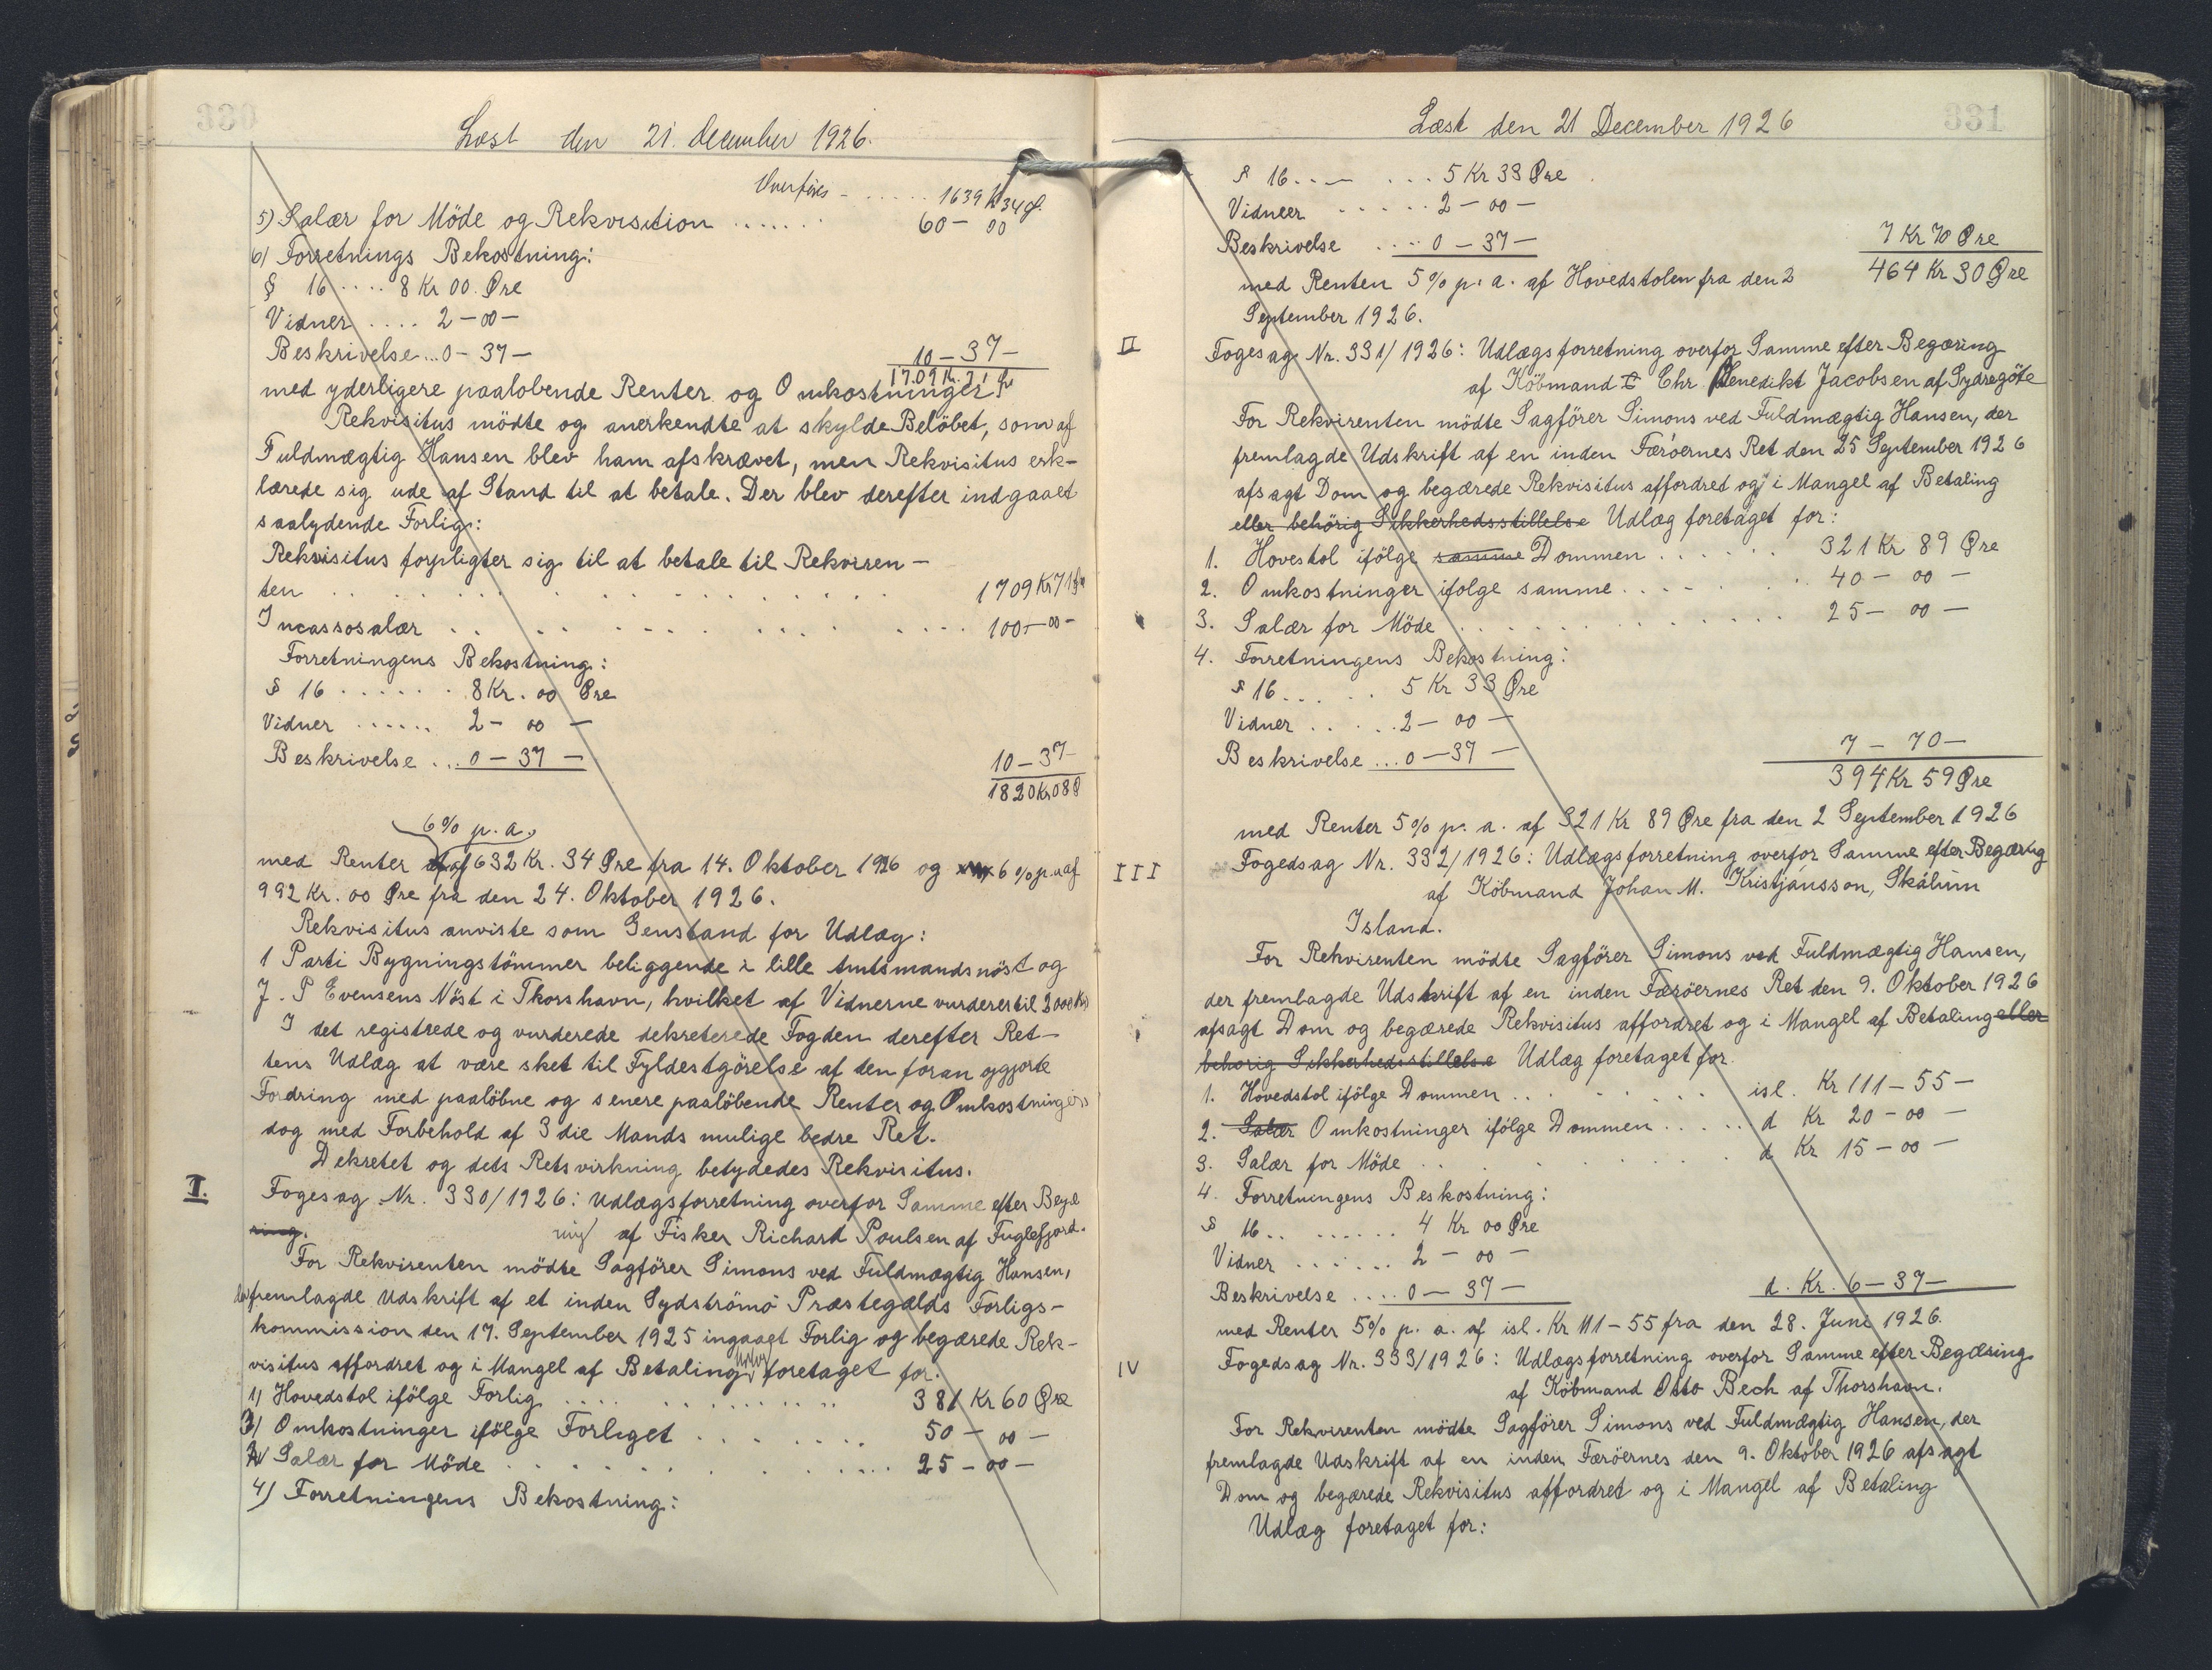 330
Læst den 21. December 1926.
Overføres - ..... 1639 Kr 34 Ø.
5) Salær for Möde og Rekvisition ...... 60 - 00
6) Forretnings Bekostning:
§ 16 .... 8 Kr 00. Øre
Vidner .... 2 - 00 -
Beskrivelse ... 0 - 37 - 10 - 37 -
1709 Kr. 71 Ør
med yderligere paalobende Renter og Omkostninger.
Rekvisitus mödte og anerkendte at skylde Belöbet, som af
Fuldmægtig Hansen blev ham afskrævet, men Rekvisitus erk-
lærede sig ude af Stand til at betale. Der blev derefter indgaaet
saalydende Forlig:
Rekvisitus forpligter sig til at betale til Rekviren-
ten . . . . . . . . . . . . 1709 Kr 71 Ør
Incassosalær . . . . . . . . . . . 100 - 00 -
Forretningens Bekostning:
§ 16 ...... 8 Kr. 00 Øre
Vidner ...... 2 - 00 -
Beskrivelse ... 0 - 37 - 10 - 37 -
1820 Kr 08 Ø
6% p. a.
med Renter af 632 Kr. 34 Øre fra 14. Oktober 1926 og 6 % p.a af
992 Kr. 00 Øre fra den 24. Oktober 1926.
Rekvisitus anviste som Genstand for Udlæg:
1 Parti Bygningstömmer beliggende i lille Amtsmandsnöst og
J. P Evensens Nöst i Thorshavn, hvilket af Vidnerne vurderer til 2000 Kr
I det registrede og vurderede dekreterede Fogden derefter Ret-
tens Udlæg at være sket til Fyldestgörelse af den foran opgjorte
Fordring med paalöbne og senere paalöbende Renter og Omkostninger
dog med Forbehold af 3die Mands mulige bedre Ret.
Dekretet og dets Retsvirkning betydedes Rekvisitus.
I. Fogesag Nr. 330/1926: Udlægsforretning overfor Samme efter Begæ
ring. ring af Fisker Richard Poulsen af Fuglefjord.
For Rekvirenten mödte Sagförer Simons ved Fuldmægtig Hansen,
der fremlagde Udskrift af et inden Sydströmö Præstegælds Forligs-
kommission den 17. September 1925 ingaaet Forlig og begærede Rek-
visitus affordret og i Mangel af Betaling Udlæg foretaget for:
1) Hovedstol ifölge Forlig .... ......... 381 Kr 60 Øre
2) Omkostninger ifölge Forliget . . . . . . . 50 - 00 -
3) Salær for Möde . . . . . . . .... 25 - 00 -
4) Forretningens Bekostning:
331
Læst den 21 December 1926
§ 16 .... ... 5 Kr 33 Øre
Vidneer ..... 2 - 00 -
Beskrivelse .... 0 - 37 - 7 Kr 70 Øre
464 Kr 30 Øre
med Renten 5 % p. a. af Hovedstolen fra den 2
September 1926.
II Fogesag Nr. 331/1926: Udlægsforretning overfor Samme efter Begæring
af Köbmand Chr Benedikt Jacobsen af Sydregöte
For Rekvirenten mödte Sagförer Simons ved Fuldmægtig Hansen, der
fremlagde Udskrift af en inden Færöernes Ret den 25 September 1926
afsagt Dom og begærede Rekvisitus affordret og i Mangel af Betaling
eller behörig Sikkerhedsstillelse Udlæg foretaget for:
1. Hovestol ifölge samme Dommen ...... 321 Kr 89 Øre
2. Omkostninger ifolge samme ...... 40 - 00 -
3. Salær for Möde . . . . . . . . . . 25 - 00 -
4. Forretningens Bekostning:
§ 16 .. . . . 5 Kr 33 Øre
Vidner ..... 2 - 00 -
Beskrivelse ... 0 - 37 - 7 - 70 -
394 Kr 59 Øre
med Renter 5 % p. a. af 321 Kr 89 Øre fra den 2 September 1926
III Fogedsag Nr. 332/1926: Udlægsforretning overfor Samme efter Begæring
af Köbmand Johan M. Kristjánsson, Skálum
Island.
For Rekvirenten mödte Sagförer Simons ved Fuldmægtig Hansen,
der fremlagde Udskrift af en inden Færöernes Ret den 9. Oktober 1926
afsagt Dom og begærede Rekvisitus affordret og i Mangel af Betaling eller
behörig Sikkerhedsstillelse Udlæg foretaget for.
1. Hovedstol ifölge Dommen ........ isl. Kr 111 - 55 -
2. Salær Omkostninger ifölge Dommen ..... d Kr 20 - 00 -
3. Salær for Möde . . . . . . . d Kr 15 - 00 -
4. Forretningens Beskostning:
§ 16 .. ...... 4 Kr 00 Øre
Vidner ...... 2 - 00 -
Beskrivelse .... 0 - 37 - d. Kr. 6 - 37 -
med Renter 5% p. a. af isl. Kr 111 - 55 fra den 28. Juni 1926.
IV Fogedsag Nr. 333/1926: Udlægsforretning overfor Samme efter Begæring
af Köbmand Otto Bech af Thorshavn.
For Rekvirenten mödte Sagförer Simons ved Fuldmægtig Hansen, der
fremlagde Udskrift af en inden Færöernes den 9. Oktober 1926 afsagt
Dom og begærede Rekvisitus affordret og i Mangel af Betaling
Udlæg foretaget for: